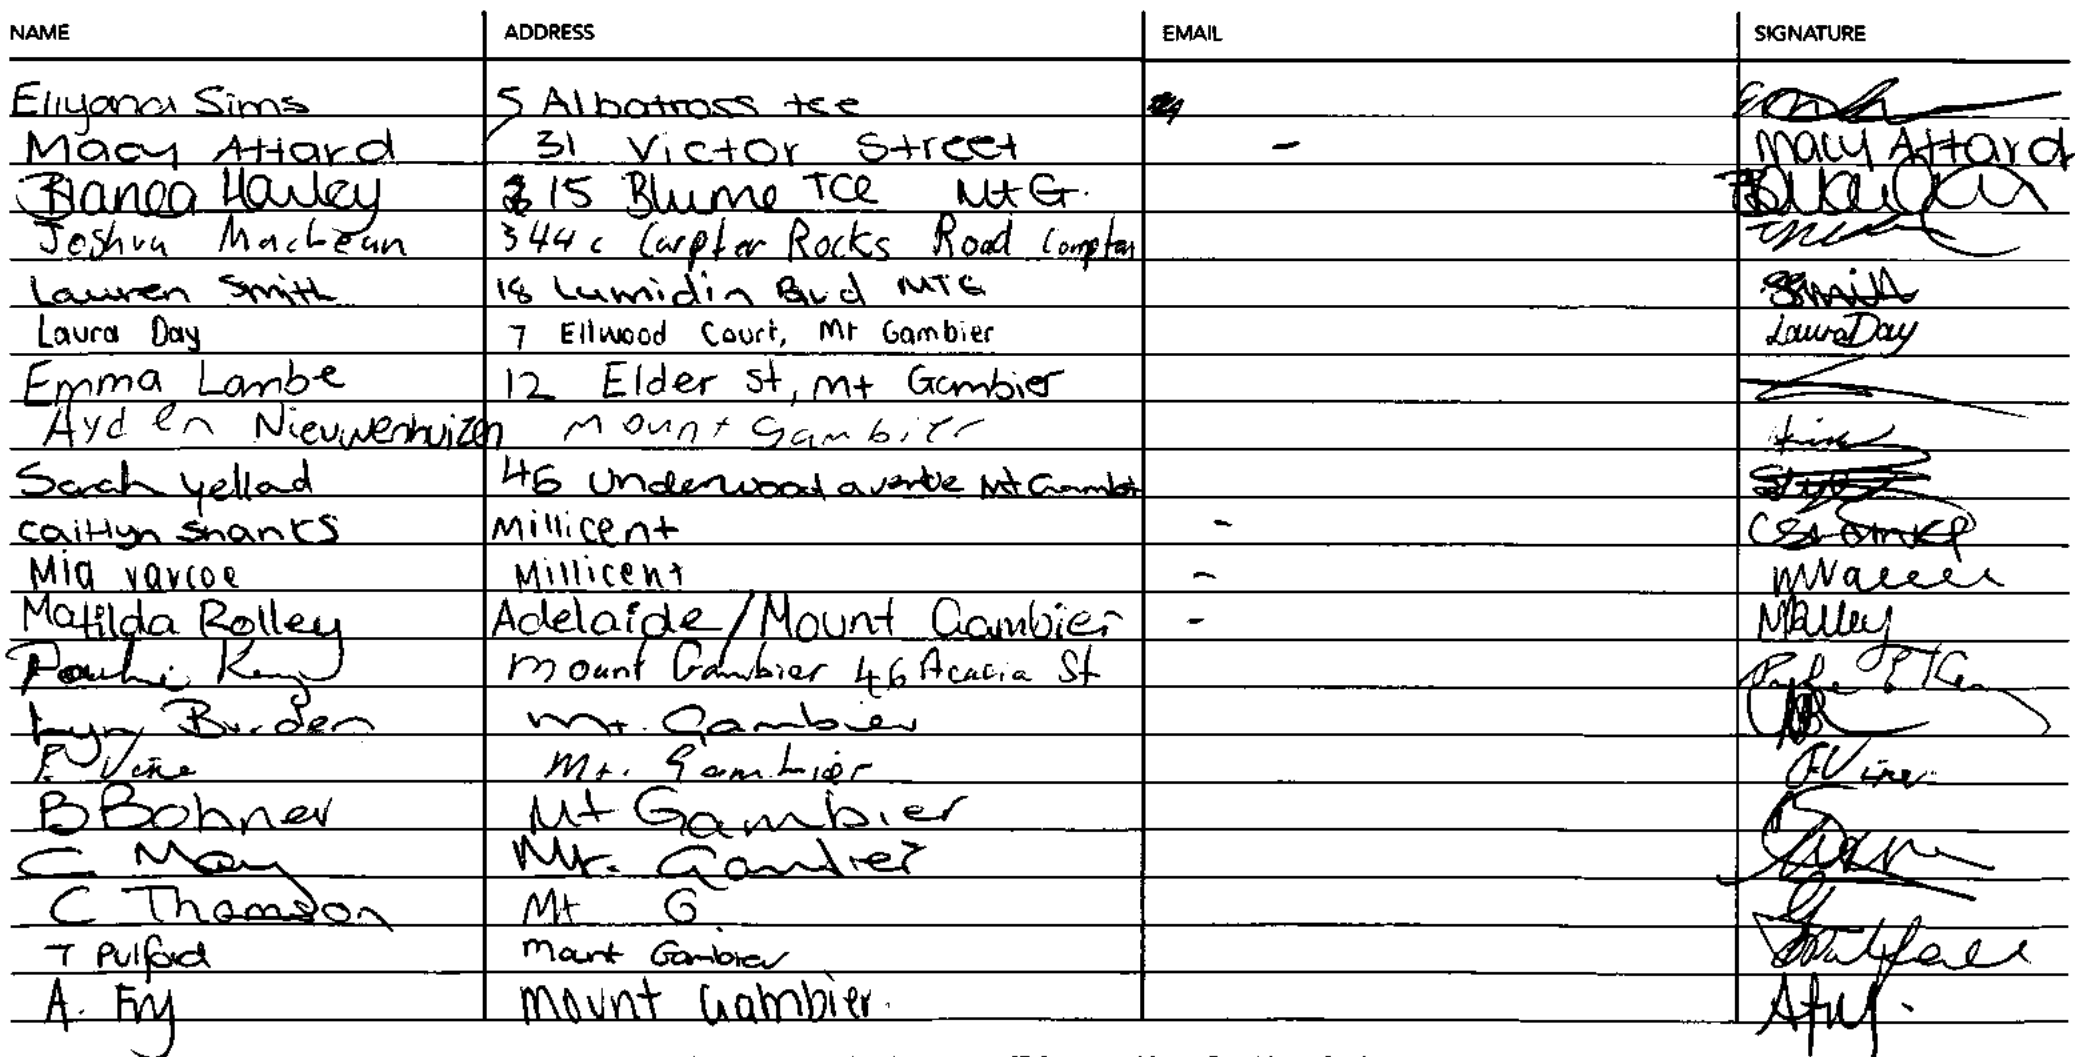 NAME ADDRESS EMAIL SIGNATURE
Ellyana Sims 5 Albatross tce
Macy Attard 31 Victor Street - Macy Attard
Bianca Hawley 15 Blume TCE Mt G.
Joshua MacLean 344c Carpter Rocks Road Compton
Lauren Smith 18 Lumidin Blvd MTG Smith
Laura Day 7 Ellwood Court, Mt Gambier Laura Day
Emma Lambe 12 Elder st, Mt Gambier
Ayden Nieuwenhuizen Mount Gambier
Sarah yellad 46 Underwood avenue Mt Gambier
Caitlyn Shanks Millicent -
Mia Varcoe Millicent - MVarcoe
Matilda Rolley Adelaide/Mount Gambier - MRolley
Mount Gambier 46 Acacia St
Lyn Burden Mt. Gambier
Vine Mt. Gambier Vine
B Bohner Mt Gambier
C. May Mt. Gambier
C Thomson Mt G
T Pulford Mount Gambier
A. Fry Mount Gambier. AFry.